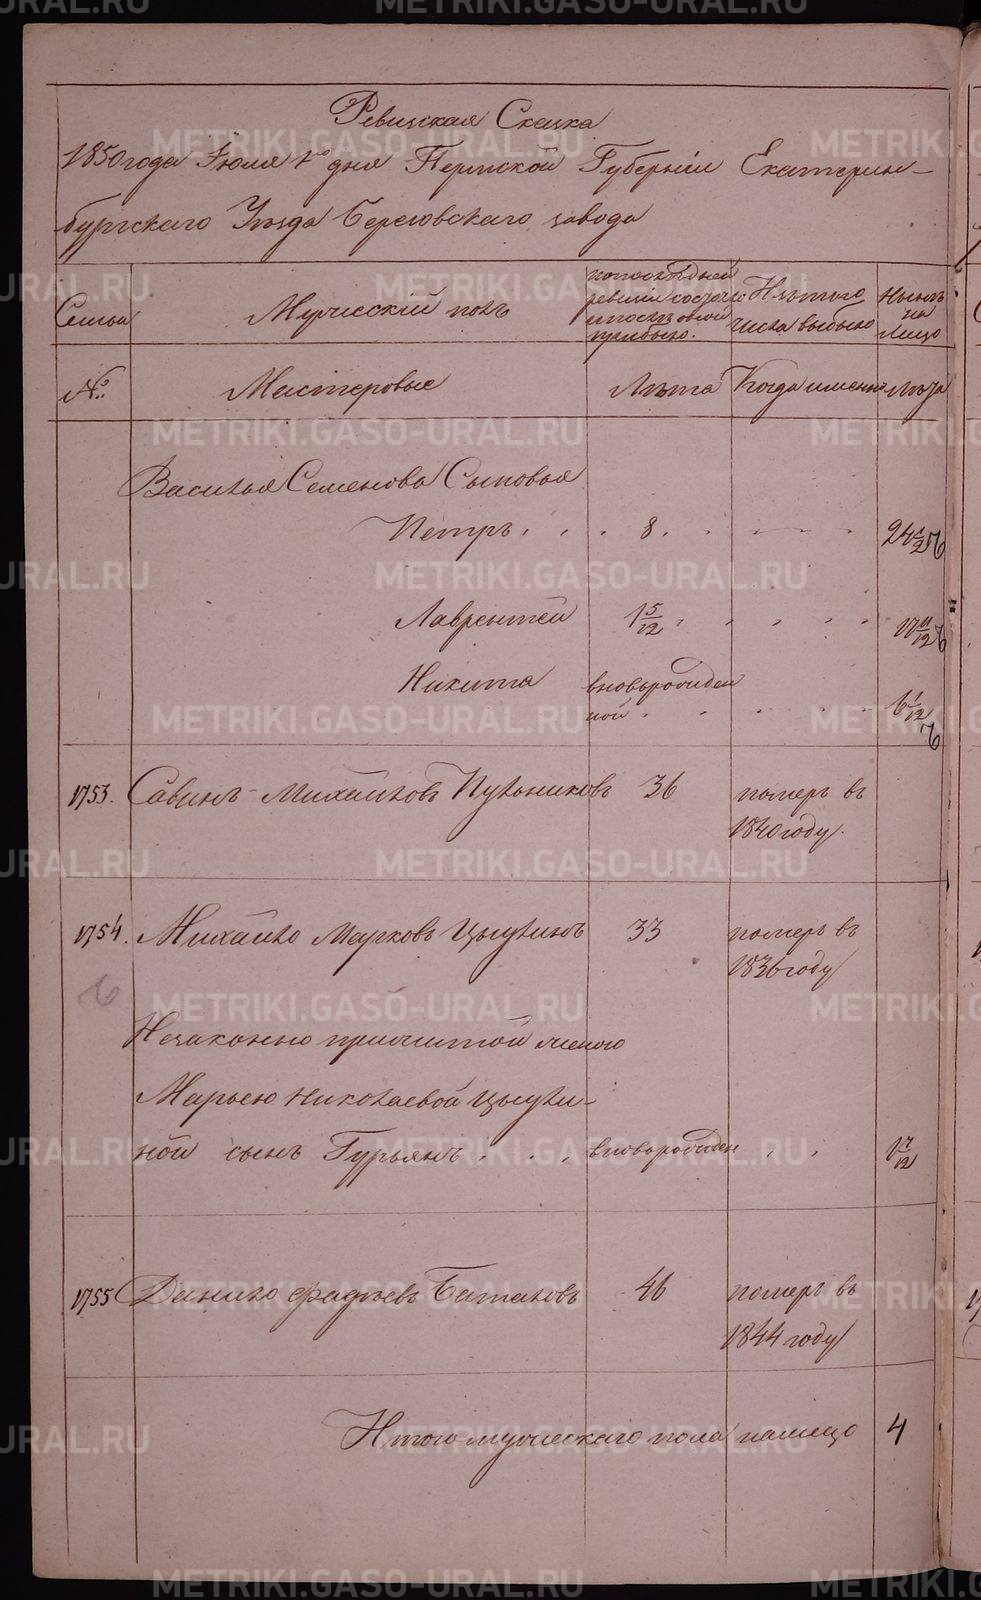 Ревизская Сказка
1850 года Июля 1го дня Пермской Губерніи Екатерин-
бургскаго Уѣзда Березовскаго завода
Семьи
Мужескій полъ
по последней
ревизіи состояло
и послѣ оной
прибыло.
Изъ того
числа выбыло
Нынѣ
на
лицо
№.
Мастеровые
Лѣта
Когда именно
Лѣта
Василья Семенова Сыновья
Петръ . . . 8 . 24 1/2
Лаврентей 1 5/12 17 11/12
Никита вноворожден
ной 6 1/12
1753. Савинъ Михайловъ Пульниковъ 36 померъ въ
1840 году.
1754. Михайло Марковъ Цыгулинъ 33 померъ въ
1836 году
Незаконно прижитой женою
Марьею Николаевой
ной сынъ Гурьянъ . . . вноворожден 1 7/12
1755 Данило Фадѣевъ Баталовъ 46 померъ въ
1844 году
Итого мужескаго пола налицо 4
METRIKI.GASO-URAL.RU